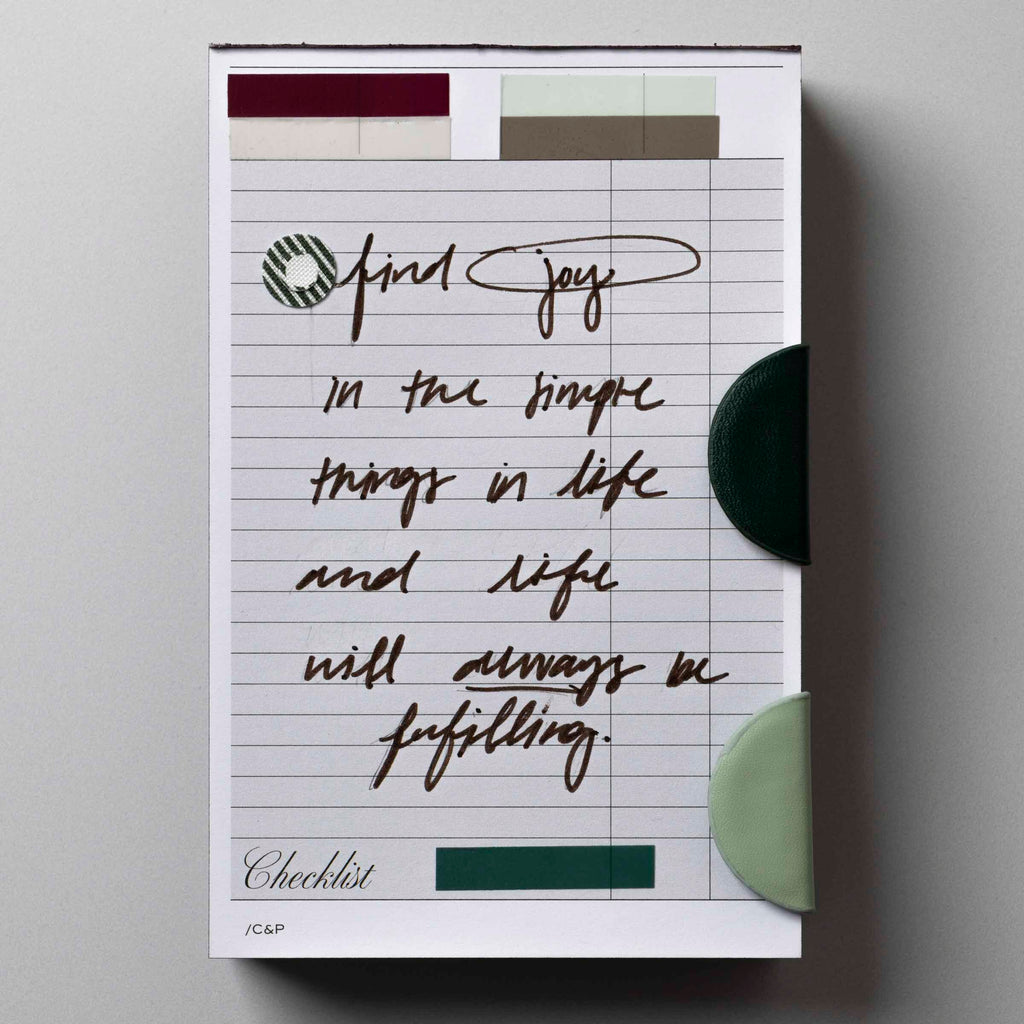 find joy
in the simple
things in life
and life
will always be
fulfilling.
Checklist
/C&P